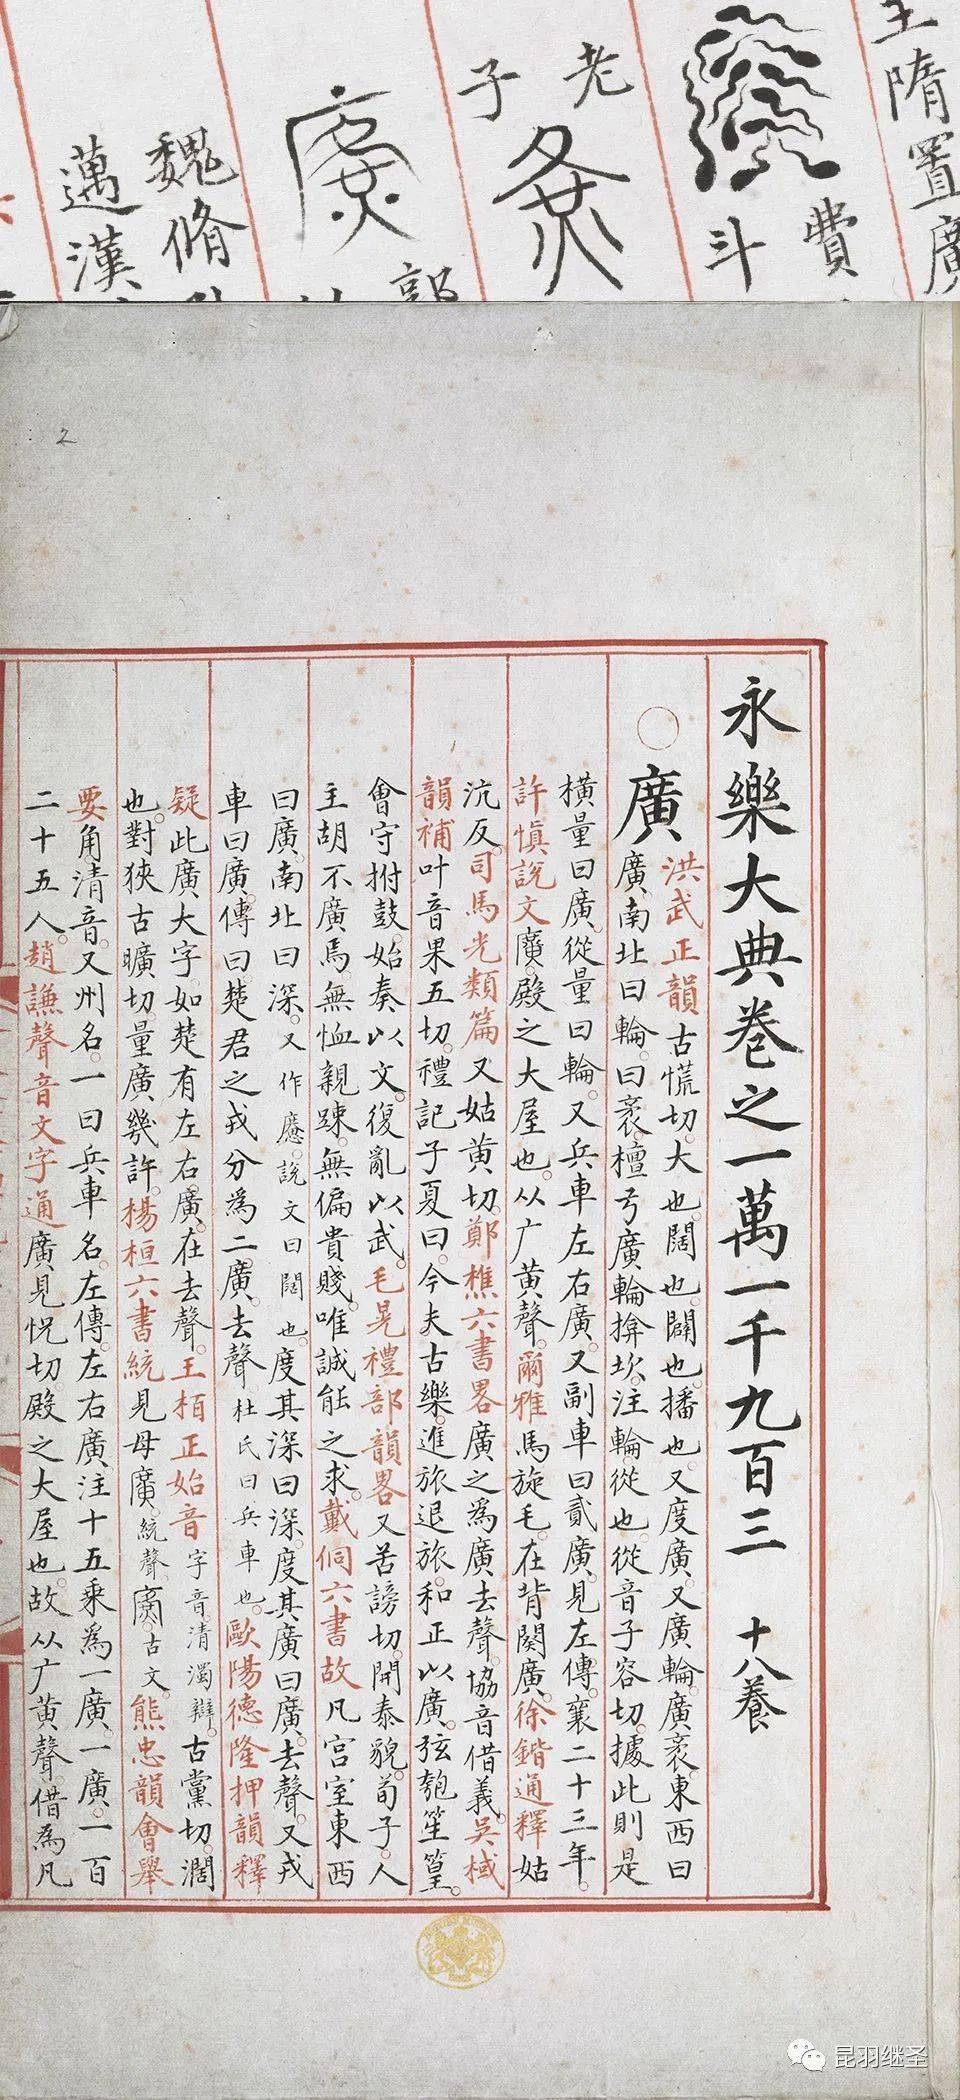 王隋置廣
費
斗
老
子
郭
魏脩
邁漢
2
永樂大典卷之一萬一千九百三 十八養
廣
洪武正韻古慌切大也闊也闢也播也又度廣又廣輪廣袤東西曰
廣南北曰輪曰袤檀弓廣輪揜坎注輪從也從音子容切據此則是
橫量曰廣從量曰輪又兵車左右廣又副車曰貳廣見左傳襄二十三年
許慎說文廣殿之大屋也从广黃聲爾雅馬旋毛在背闋廣徐鍇通釋姑
沆反司馬光類篇又姑黃切鄭樵六書畧廣之為廣去聲協音借義吳棫
韻補叶音果五切禮記子夏曰今夫古樂進旅退旅和正以廣弦匏笙篁
會守拊鼓始奏以文復亂以武毛晃禮部韻畧又苦謗切開泰貌荀子人
主胡不廣焉無恤親踈無偏貴賤唯誠能之求戴侗六書故凡宮室東西
曰廣南北曰深又作㢓說文曰闊也度其深曰深度其廣曰廣去聲又戎
車曰廣傳曰楚君之戎分為二廣去聲杜氏曰兵車也歐陽德隆押韻釋
疑此廣大字如楚有左右廣在去聲王柏正始音字音清濁辯古黨切濶
也對狹古曠切量廣幾許楊桓六書統見母廣統聲古文熊忠韻會舉
要角清音又州名一曰兵車名左傳左右廣注十五乘為一廣一廣一百
二十五人趙謙聲音文字通廣見怳切殿之大屋也故从广黃聲借為凡
昆羽继圣